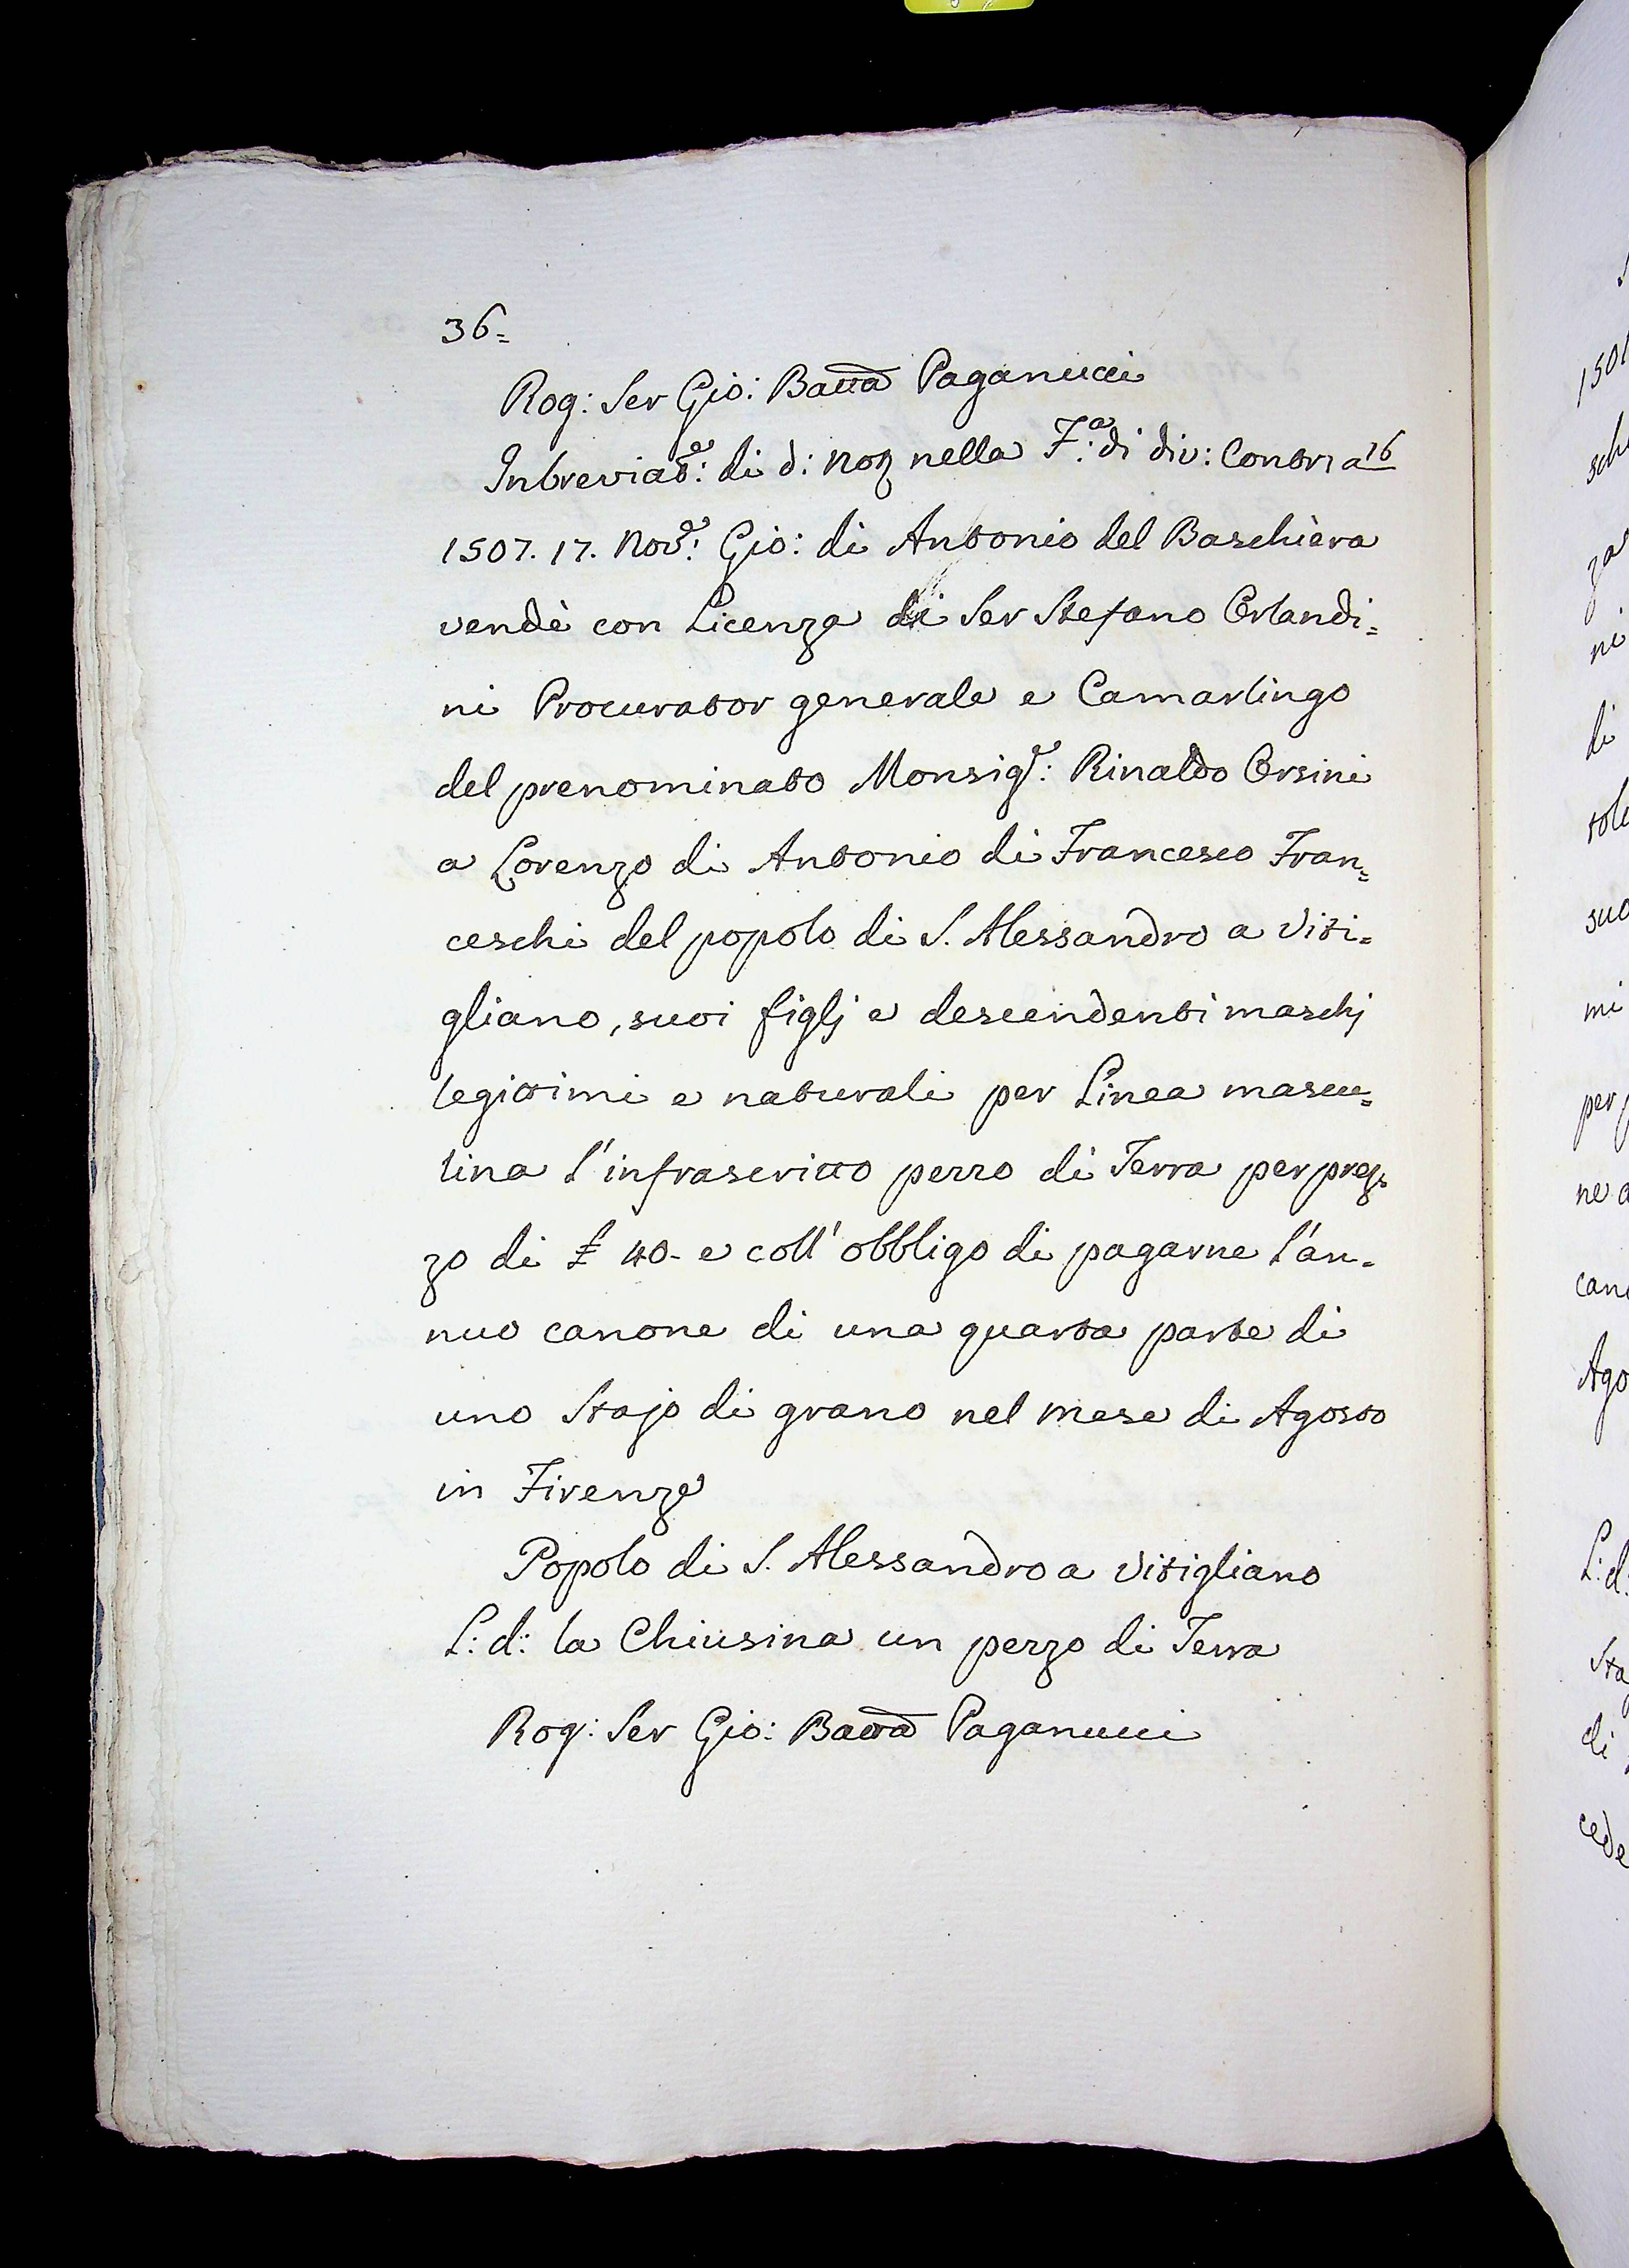 36=
Rog: Ser Gio: Batta Paganucci
Inbreviat.e: di d: Nog nella F.a: di div: Contr: a 16
1507. 17. Nov.e: Gio: di Antonio del Baschiera
vendè con Licenza di Ser Stefano Orlandi=
ni Procurator generale e Camarlingo
del prenominato Monsig.e: Rinaldo Orsini
a Lorenzo di Antonio di Francesco Fran=
ceschi del popolo di S. Alessandro a Viti=
gliano, suoi figlj e descendenti maschj
legittimi e naturali per Linea mascu=
lina l'infrascritto pezzo di Terra per prez=
zo di £ 40- e coll' obbligo di pagarne l'an=
nuo canone di una quarta parte di
uno Stajo di grano nel mese di Agosto
in Firenze
Popolo di S. Alessandro a Vitigliano
L: d: la Chiusina un pezzo di Terra
Rog: Ser Gio: Batta Paganucci